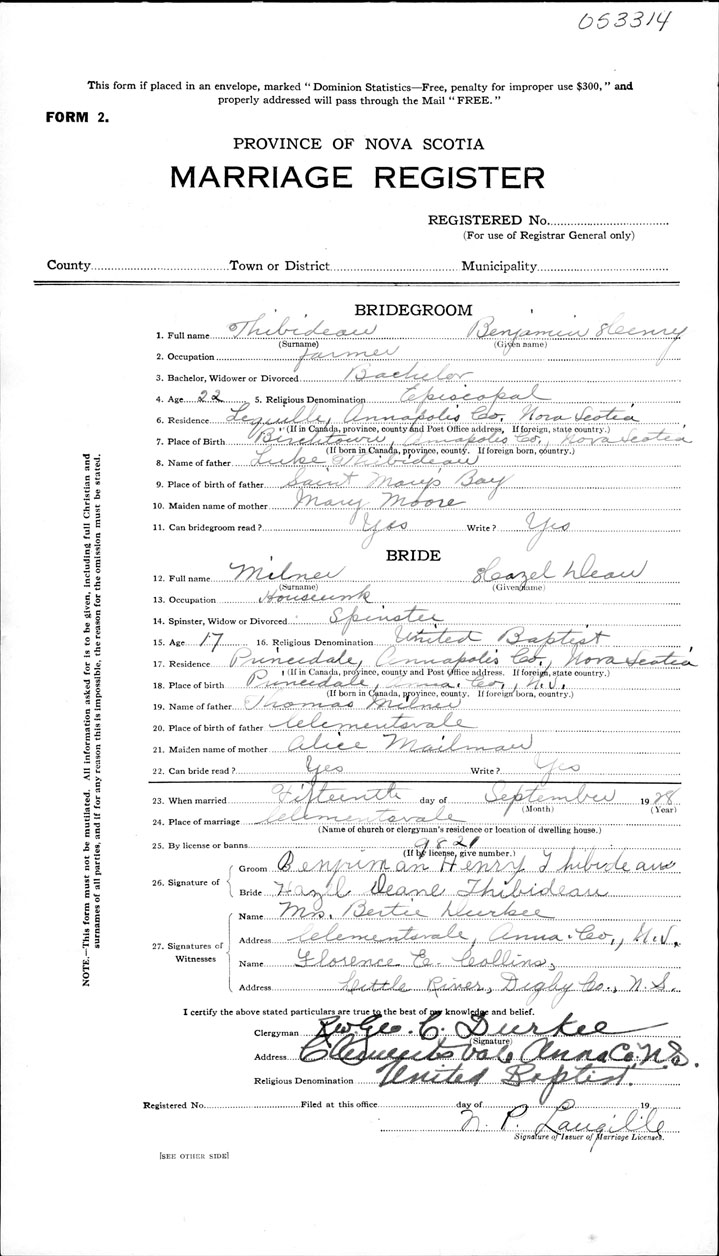 053314
This form if placed in an envelope, marked "Dominion Statistics—Free, penalty for improper use $300," and
properly addressed will pass through the Mail "FREE."
FORM 2.
PROVINCE OF NOVA SCOTIA
MARRIAGE REGISTER
REGISTERED No.
(For use of Registrar General only)
County Town or District Municipality
BRIDEGROOM
1. Full name Thibideau Benjamin Henry
(Surname) (Given name)
2. Occupation farmer
3. Bachelor, Widower or Divorced Bachelor
4. Age 22 5. Religious Denomination Episcopal
6. Residence Lequille, Annapolis Co, Nova Scotia
(If in Canada, province, county and Post Office address. If foreign, state country.)
7. Place of Birth Birchtown, Annapolis Co., Nova Scotia
(If born in Canada, province, county. If foreign born, country.)
8. Name of father Luke Thibideau
9. Place of Birth of father Saint Marys Bay
10. Maiden name of mother Mary Moore
11. Can bridegroom read? Yes Write? Yes
BRIDE
12. Full name Milner Hazel Dean
(Surname) (Given name)
13. Occupation Housework
14. Spinster, Widow or Divorced Spinster
15. Age 17 16. Religious Denomination United Baptist
17. Residence Princedale, Annapolis Co., Nova Scotia
(If in Canada, province, county and Post Office address. If foreign, state country.)
18. Place of birth Princedale, Anna. Co., N.S.
(If born in Canada, province, county. If foreign born, country.)
19. Name of father Thomas Milner
20. Place of birth of father Clementsvale
21. Maiden name of mother Alice Mailman
22. Can bride read? Yes Write? Yes
23. When married Fifteenth day of September 1928
(Month) (Year)
24. Place of marriage Clementsvale
(Name of church or clergyman's residence or location of dwelling house.)
25. By license or banns 9821
(If by license, give number.)
26. Signature of
Groom Benjiman Henry Thibideau
Bride Hazel Deane Thibideau
27. Signatures of Witnesses
Name Mrs. Bertie Durkee
Address Clementsvale, Anna. Co., N.S.
Name Florence E. Collins,
Address Little River, Digby Co., N.S.
I certify the above stated particulars are true to the best of my knowledge and belief.
Clergyman Rev Geo. C. Durkee
(Signature)
Address Clementsvale Anna Co. N.S.
Religious Denomination United Baptist.
Registered No. Filed at this office day of 19
N. P. Langille
Signature of Issuer of Marriage Licenses.
[SEE OTHER SIDE]
NOTE.—This form must not be mutilated. All information asked for is to be given, including full Christian and
surnames of all parties, and if for any reason this is impossible, the reason for the omission must be stated.